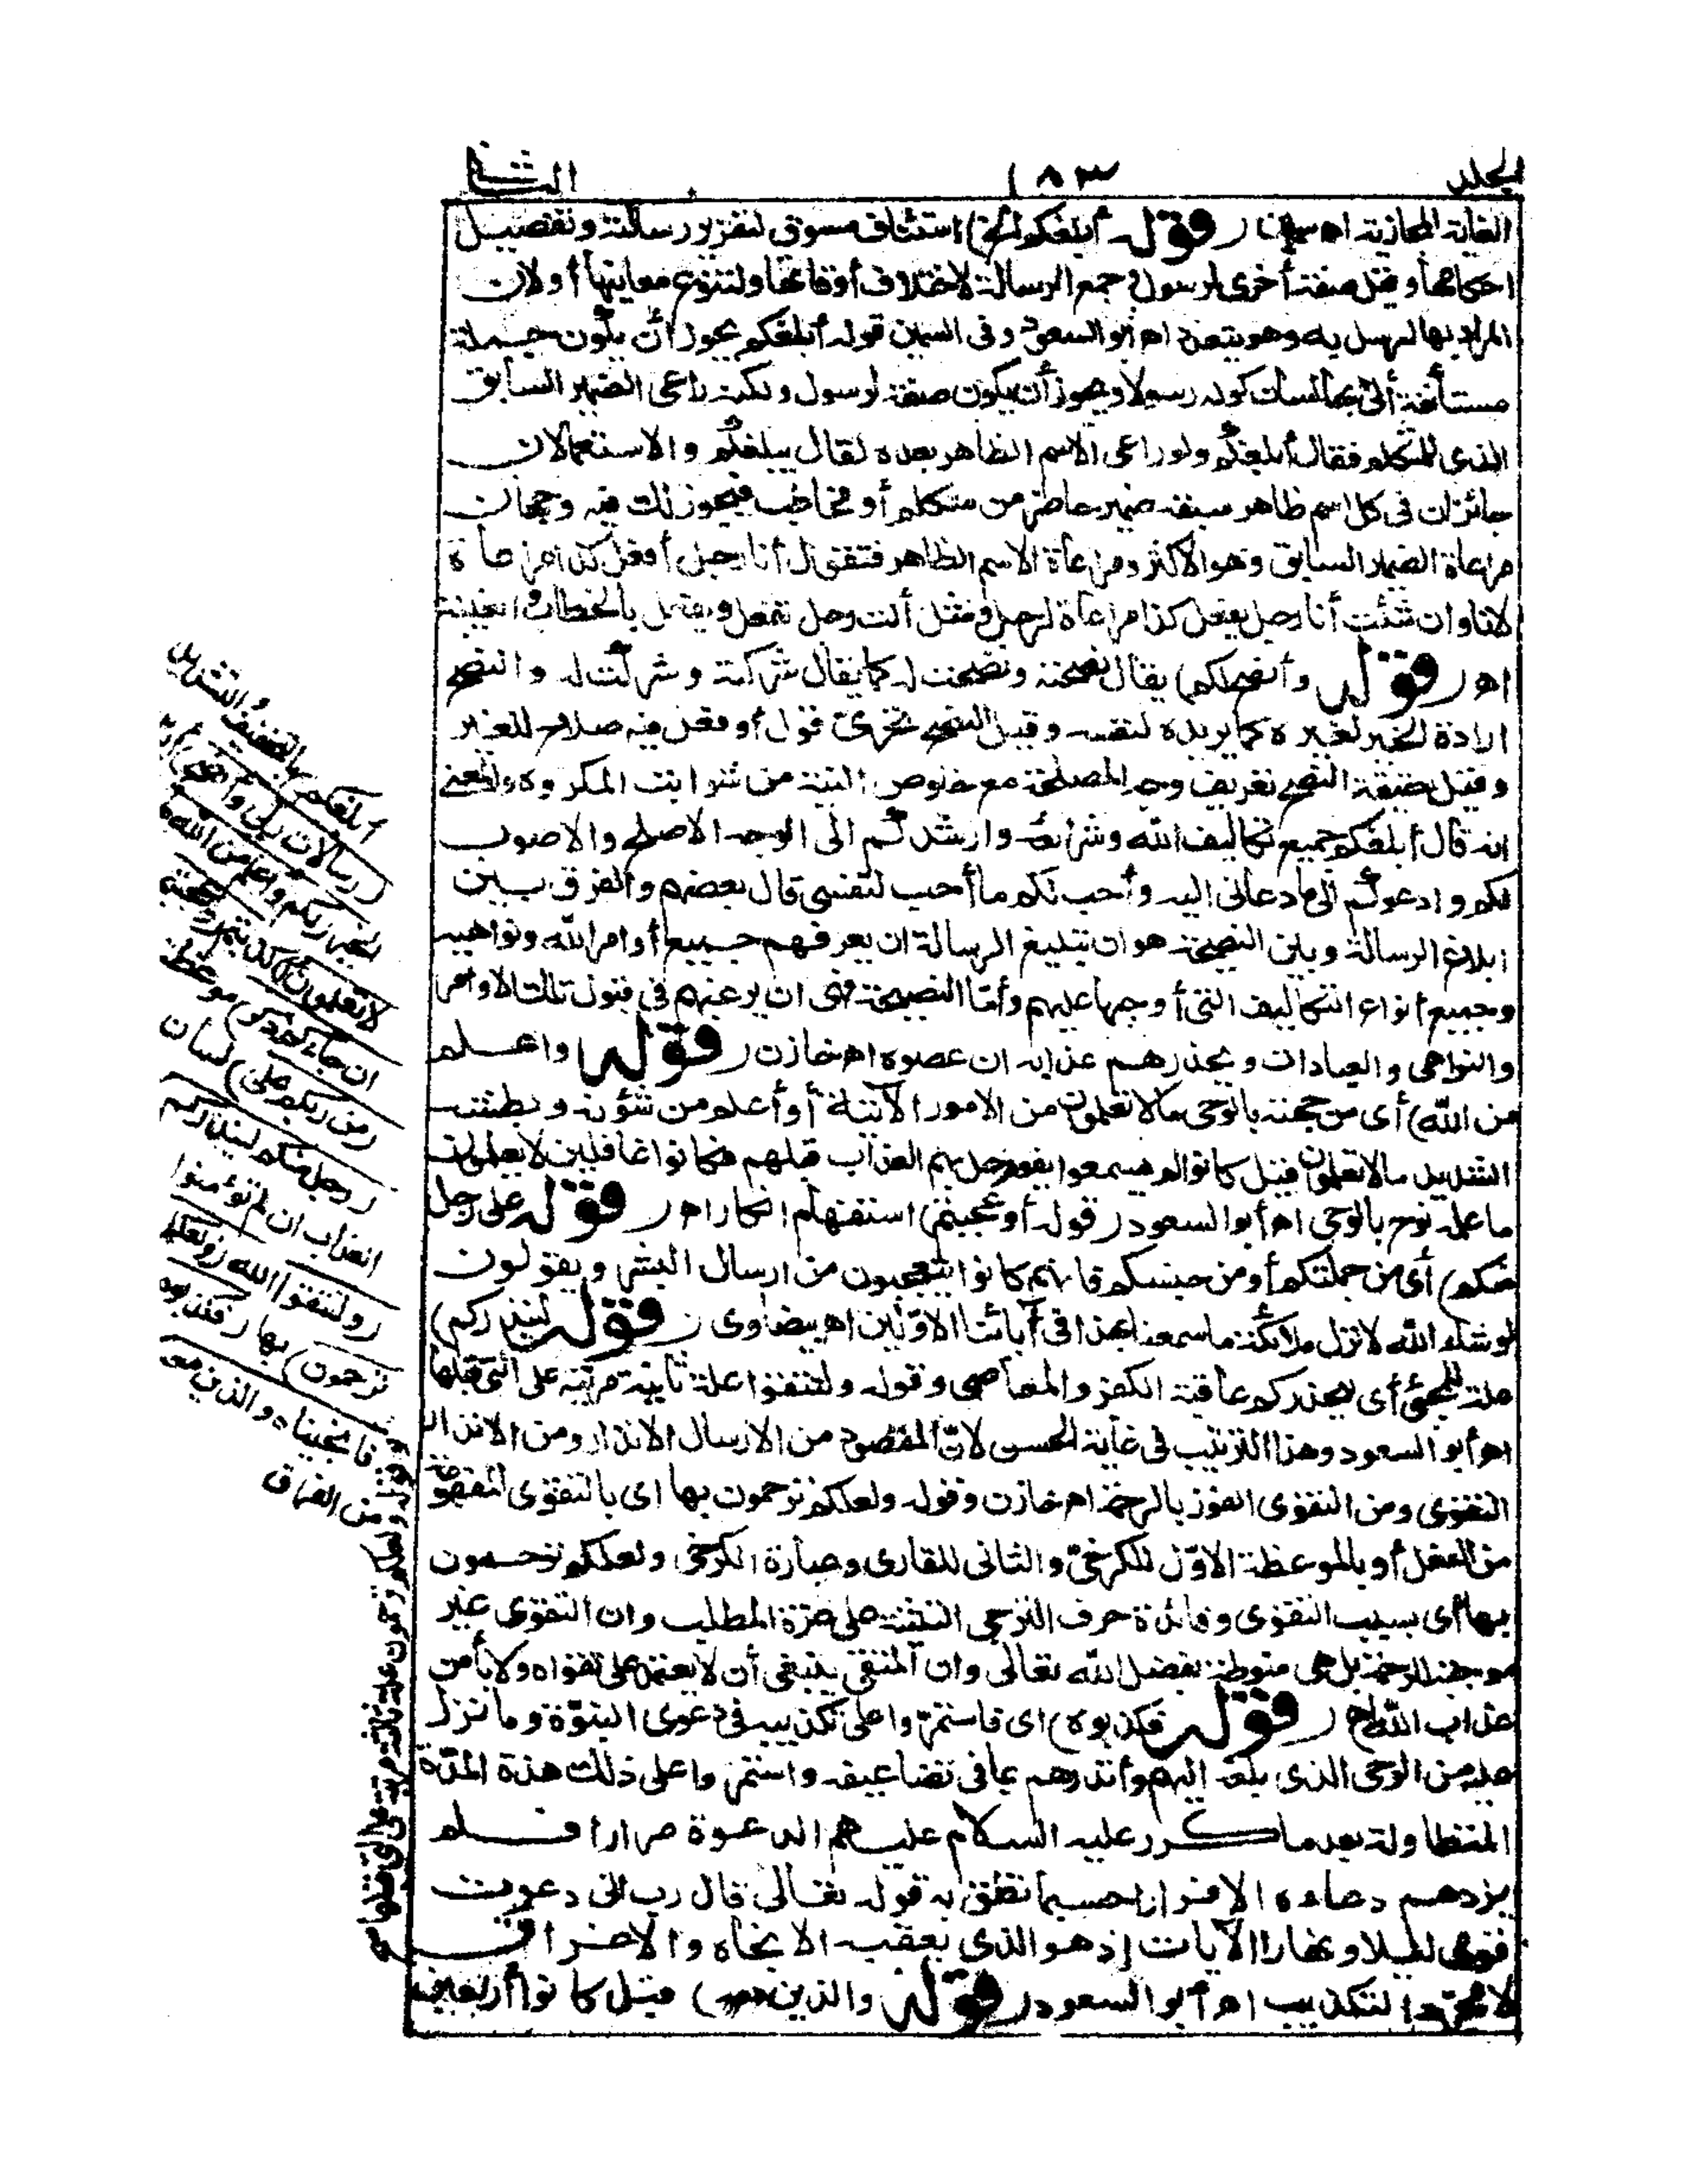 الجلد ١٨٣ الثا
الغاية المجازية اه سمين (قوله أبلغكم الخ) استئناف مسوق لتقرير رسالته وتفصيل
احكامها وقيل صفة أخرى لرسول وجمع الرسالة لاختلاف أوقاتها ولتنوع معانيها أو لان
المراد بها المرسل به وهو يتعدد اه أبو السعود وفى السمين قوله أبلغكم يجوز أن يكون جملة
مستأنفة أتى بها لبيان كونه رسولا ويجوز أن يكون صفة لرسول ولكنه راعى الضمير السابق
الذى للمتكلم فقال أبلغكم ولو راعى الاسم الظاهر بعده لقال يبلغكم والاستعمالان
جائزان فى كل اسم ظاهر سبقه ضمير حاضر من متكلم أو مخاطب فيجوز لك فيه وجهان
مراعاة الضمير السابق وهو الأكثر ومراعاة الاسم الظاهر فتقول أنا رجل أفعل كذا مراعاة
لانا وان شئت أنا رجل يفعل كذا مراعاة لرجل ومثله أنت رجل تفعل ويفعل بالخطاب والغيبة
اه (قوله وأنصح لكم) يقال نصحته ونصحت له كما يقال شكرته وشكرت له والنصح
ارادة الخير لغيره كما يريده لنفسه وقيل النصح تحرى قول أو فعل فيه صلاح للغير
وقيل حقيقة النصح تعريف وجه المصلحة مع خلوص النية من شوائب المكروه والمعنى
انه قال أبلغكم جميع تكاليف الله وشرائعه وارشدكم الى الوجه الاصلح والاصوب
لكم وادعوكم الى ما دعانى اليه وأحب لكم ما أحب لنفسى قال بعضهم والفرق بين
ابلاغ الرسالة وبين النصيحة هو ان تبليغ الرسالة ان يعرفهم جميع أوامر الله ونواهيه
وجميع أنواع التكاليف التى أوجبها عليهم وأما النصيحة فهى ان يرغبهم فى قبول تلك الاوامر
والنواهى والعبادات ويحذرهم عذابه ان عصوه اه خازن (قوله واعلم
من الله) أى من جهته بالوحى ما لا تعلمون من الامور الآتية أو أعلم من شؤنه وبطشه
الشديد ما لا تعلمون قيل كانوا لم يسمعوا بقوم حل بهم العذاب قبلهم فكانوا غافلين لا يعلمون
ما علمه نوح بالوحى اه أبو السعود (قوله أو عجبتم) استفهام انكار اه (قوله على رجل
منكم) أى من جملتكم أو من جنسكم فانهم كانوا يتعجبون من ارسال البشر ويقولون
لو شاء الله لانزل ملائكة ما سمعنا بهذا فى آبائنا الاولين اه بيضاوى (قوله لينذركم)
علة للمجئ أى ليحذركم عاقبة الكفر والمعاصى وقوله ولتتقوا علة ثانية مرتبة على التى قبلها
اه أبو السعود وهذا الترتيب فى غاية الحسن لان المقصود من الارسال الانذار ومن الانذار
التقوى ومن التقوى الفوز بالرحمة اه خازن وقوله ولعلكم ترحمون بها اى بالتقوى المفهومة
من الفعل أو بالموعظة الاول للكرخى والثانى للقارى وعبارة الكرخى ولعلكم ترحمون
بها أى بسبب التقوى وفائدة حرف الترجى التنبيه على عزة المطلب وان التقوى غير
موجبة للرحمة بل هى منوطة بفضل الله تعالى وان المتقى ينبغى أن لا يعتمد على تقواه ولا يأمن
عذاب الله اه (قوله فكذبوه) اى فاستمروا على تكذيبه فى دعوى النبوة وما نزل
عليه من الوحى الذى بلغه اليهم وأنذرهم بما فى تضاعيفه واستمروا على ذلك هذه المدة
المتطاولة بعد ما كرر عليه السلام عليهم الدعوة مرارا فلم
يزدهم دعاءه الا فرارا حسبما نطق به قوله تعالى قال رب انى دعوت
قومى ليلا ونهارا الآيات اذ هو الذى يعقبه الانجاء والاغراق
لا مجرد التكذيب اه أبو السعود (قوله والذين معه) قيل كانوا أربعين
أبلغكم) بالتخفيف والتشديد
(رسالات ربى وأنصح)
لكم وأعلم من الله ما
لا تعلمون أ) كذبتم (وعجبتم
ان جاءكم ذكر) موعظة
(من ربكم على) لسان
(رجل منكم لينذركم
العذاب ان لم تؤمنوا
(ولتتقوا) الله (ولعلكم
ترحمون) بها (فكذبوه
فانجيناه والذين معه
من الغرق
وقوله ولعلكم ترحمون علة ثالثة مرتبة على التى قبلها